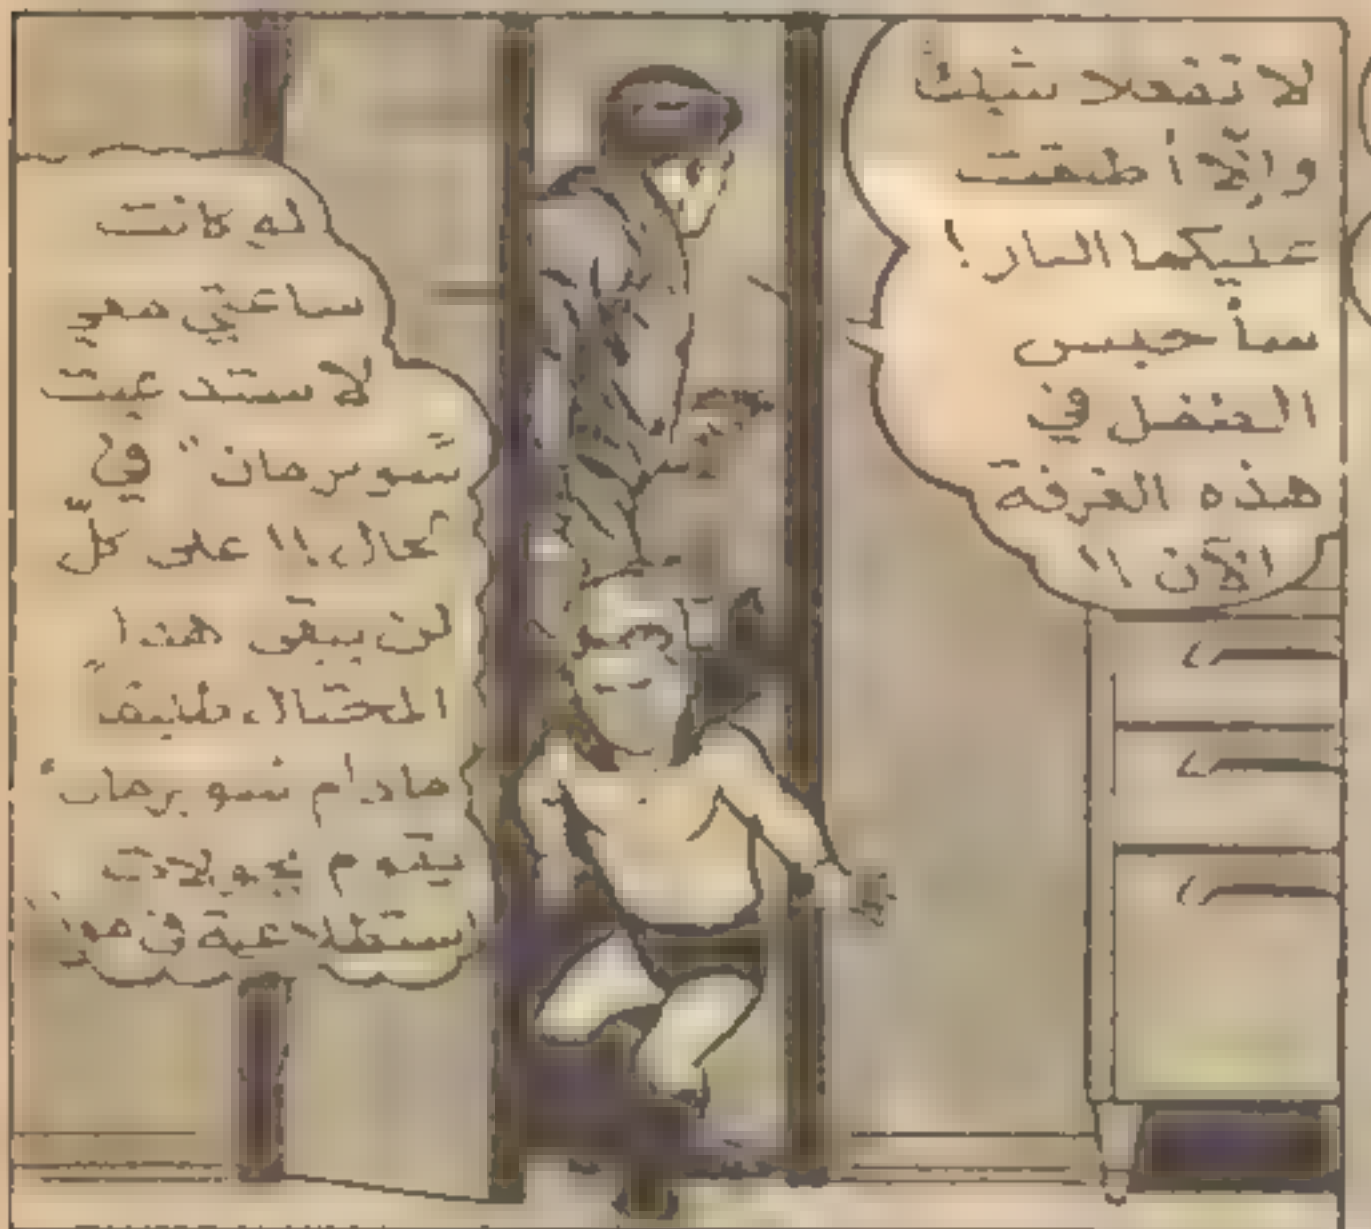 لا تفعلا شيئًا
وإلّا أطلقت
عليكما النار!
سأحبس
الطفل في
هذه الغرفة
الآن !!
لو كانت
ساعتي معي
لاستدعيت
"سوبرمان" في
الحال !! على كلّ
لن يبقى هذا
المحتال طليقًا
مادام سوبرمان
يقوم بجولات
إستطلاعية في